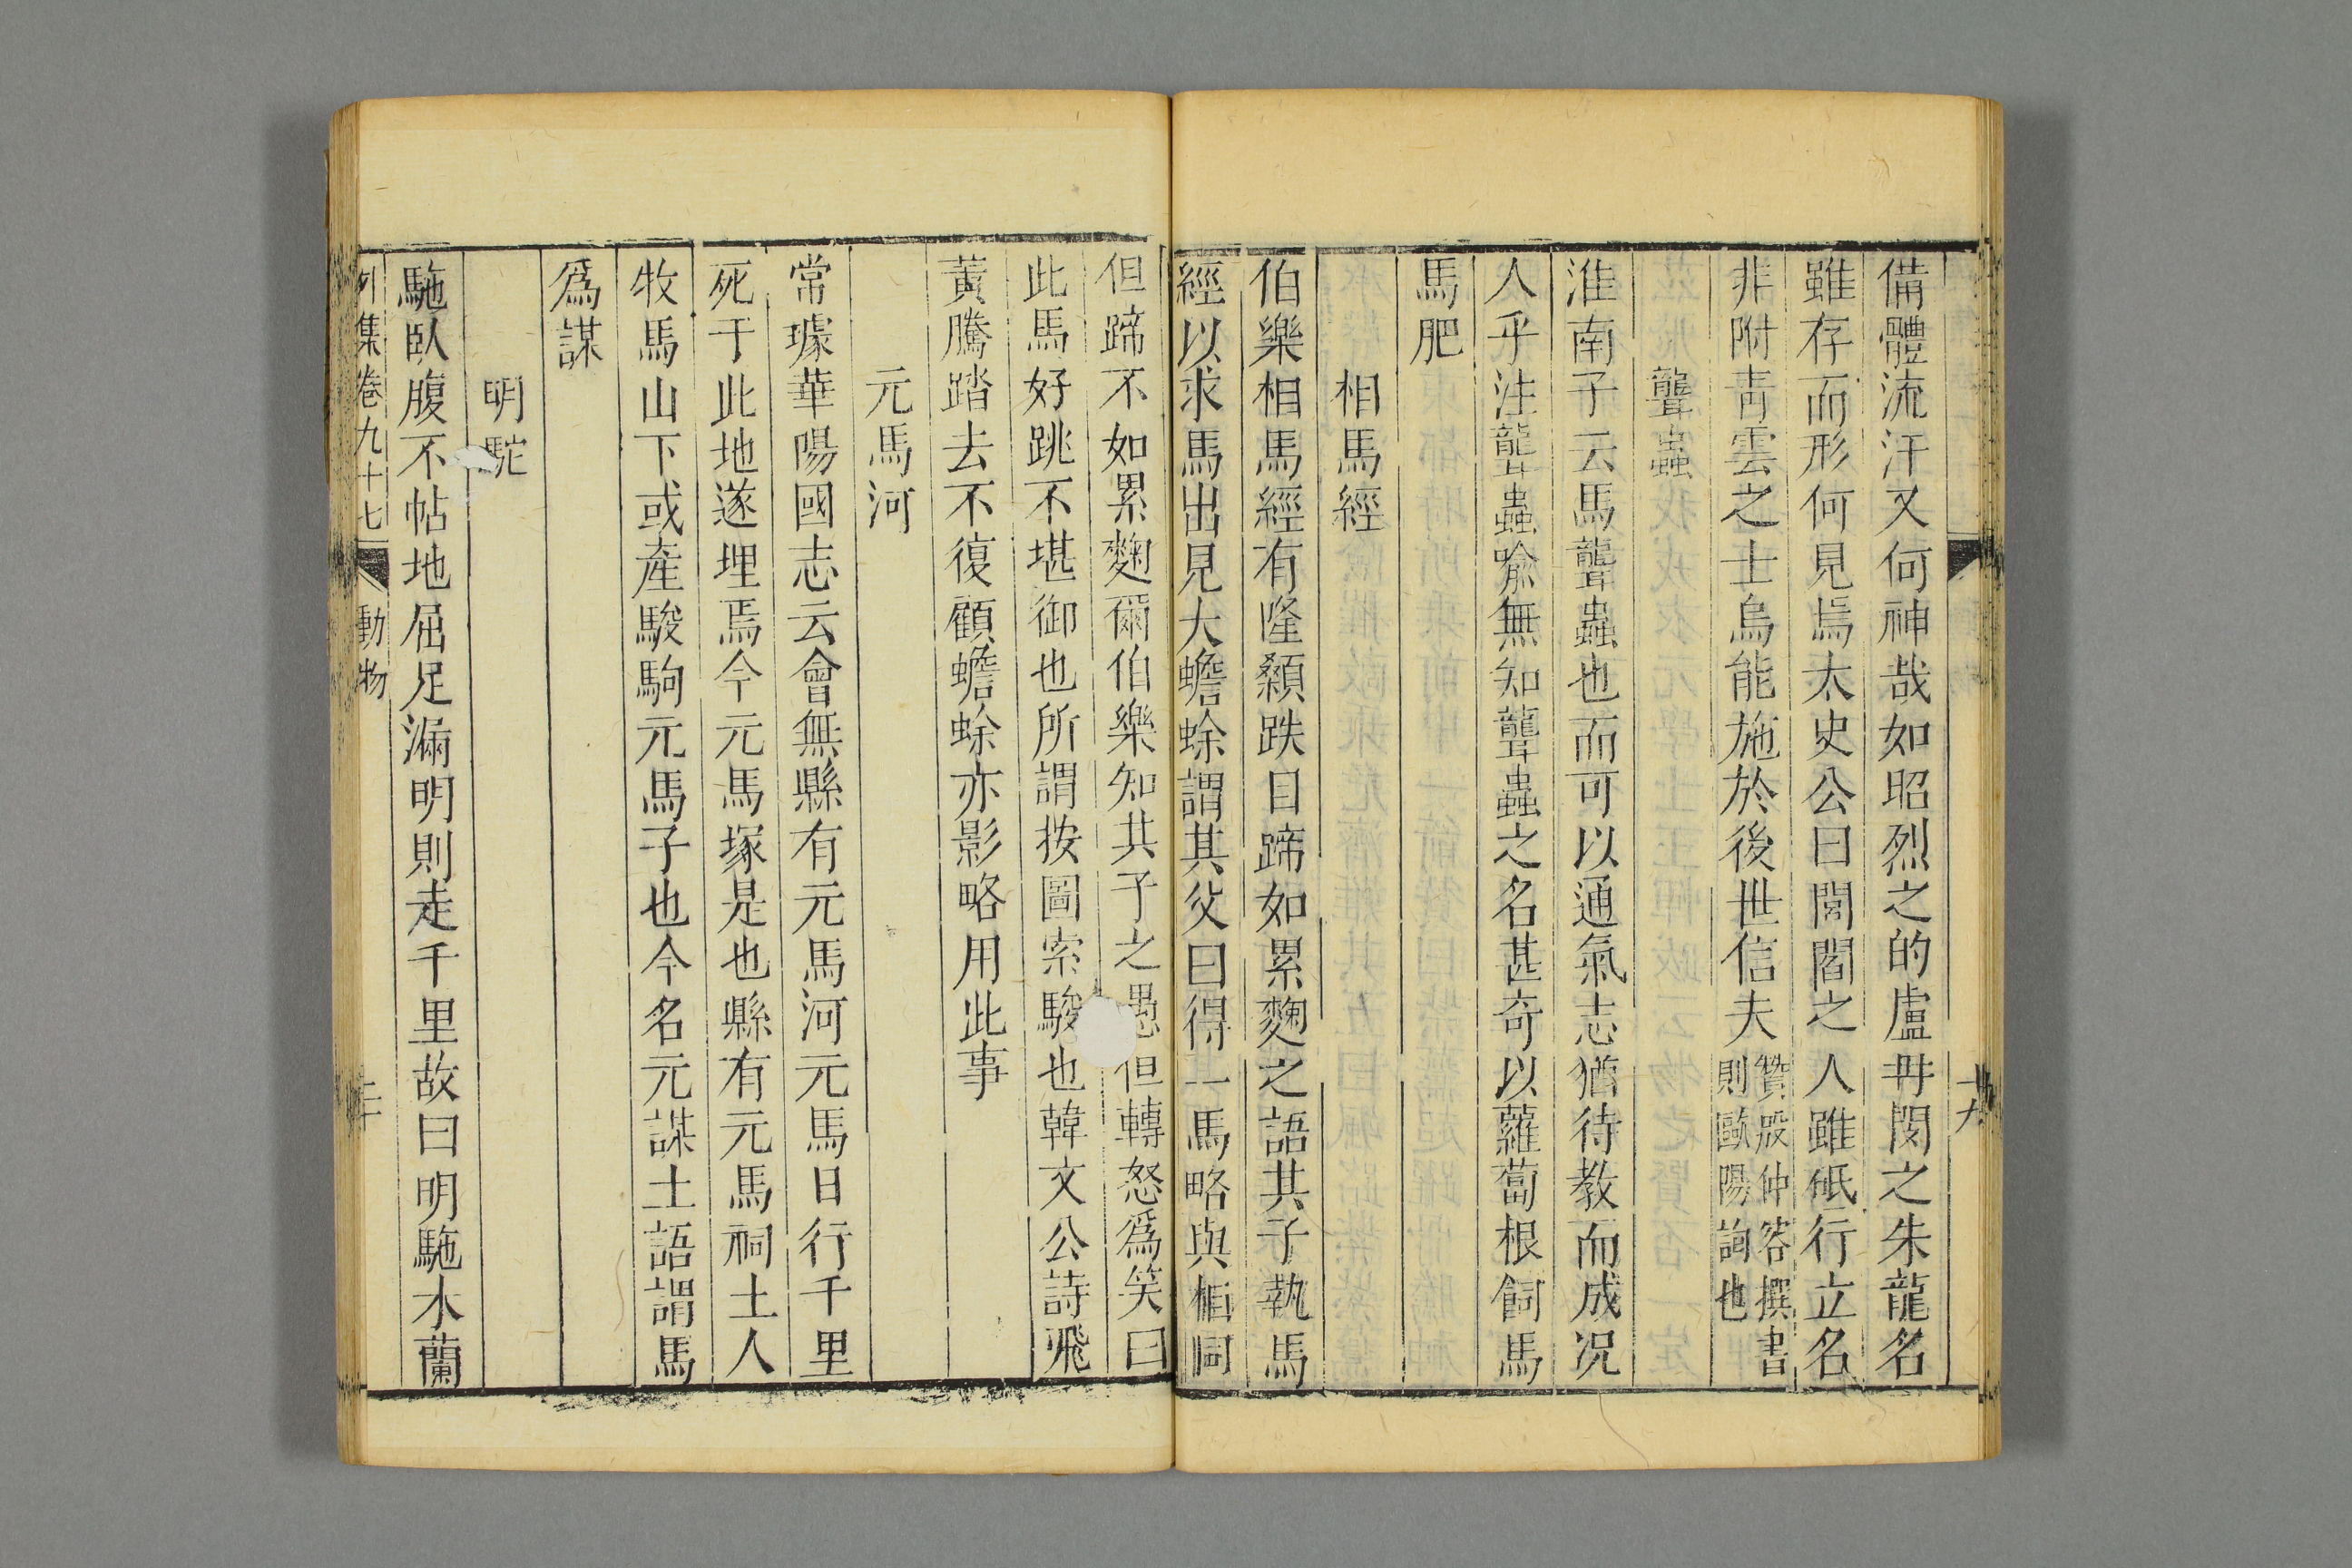 備體流汗又何神哉如昭烈之的盧冉閔之朱龍名
雖存而形何見焉太史公曰閭閻之人雖砥行立名
非附青雲之士烏能施於後世信夫贊殷仲容撰書
則歐陽詢也
聾蟲
淮南子云馬聾蟲也而可以通氣志猶待教而成况
人乎注聾蟲喻無知聾蟲之名甚奇以蘿蔔根飼馬
馬肥
相馬經
伯樂相馬經有隆顙跌目蹄如累麴之語其子執馬
經以求馬出見大蟾蜍謂其父曰得一馬略與相同
但蹄不如累麴爾伯樂知其子之愚但轉怒爲笑曰
此馬好跳不堪御也所謂按圖索駿也韓文公詩飛
黃騰踏去不復顧蟾蜍亦影略用此事
元馬河
常璩華陽國志云會無縣有元馬河元馬日行千里
死于此地遂埋焉今元馬塚是也縣有元馬祠土人
牧馬山下或產駿駒元馬子也今名元謀土語謂馬
爲謀
明駝
駞臥腹不帖地屈足漏明則走千里故曰明駞木蘭
集卷九十七 動物
十九
二十